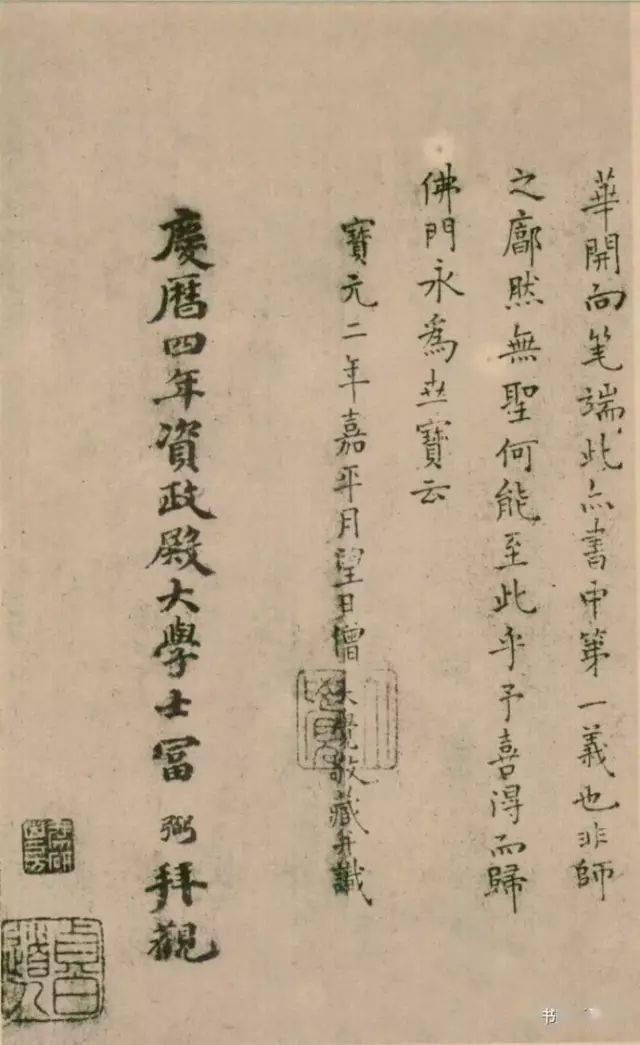 華開向笔端此亦書中第一義也非師
之廓然無聖何能至此乎予喜得而歸
佛門永為世寶云
寶元二年嘉平月望日僧大覺敬藏并識
慶曆四年資政殿大學士富弼拜觀
貞白
书